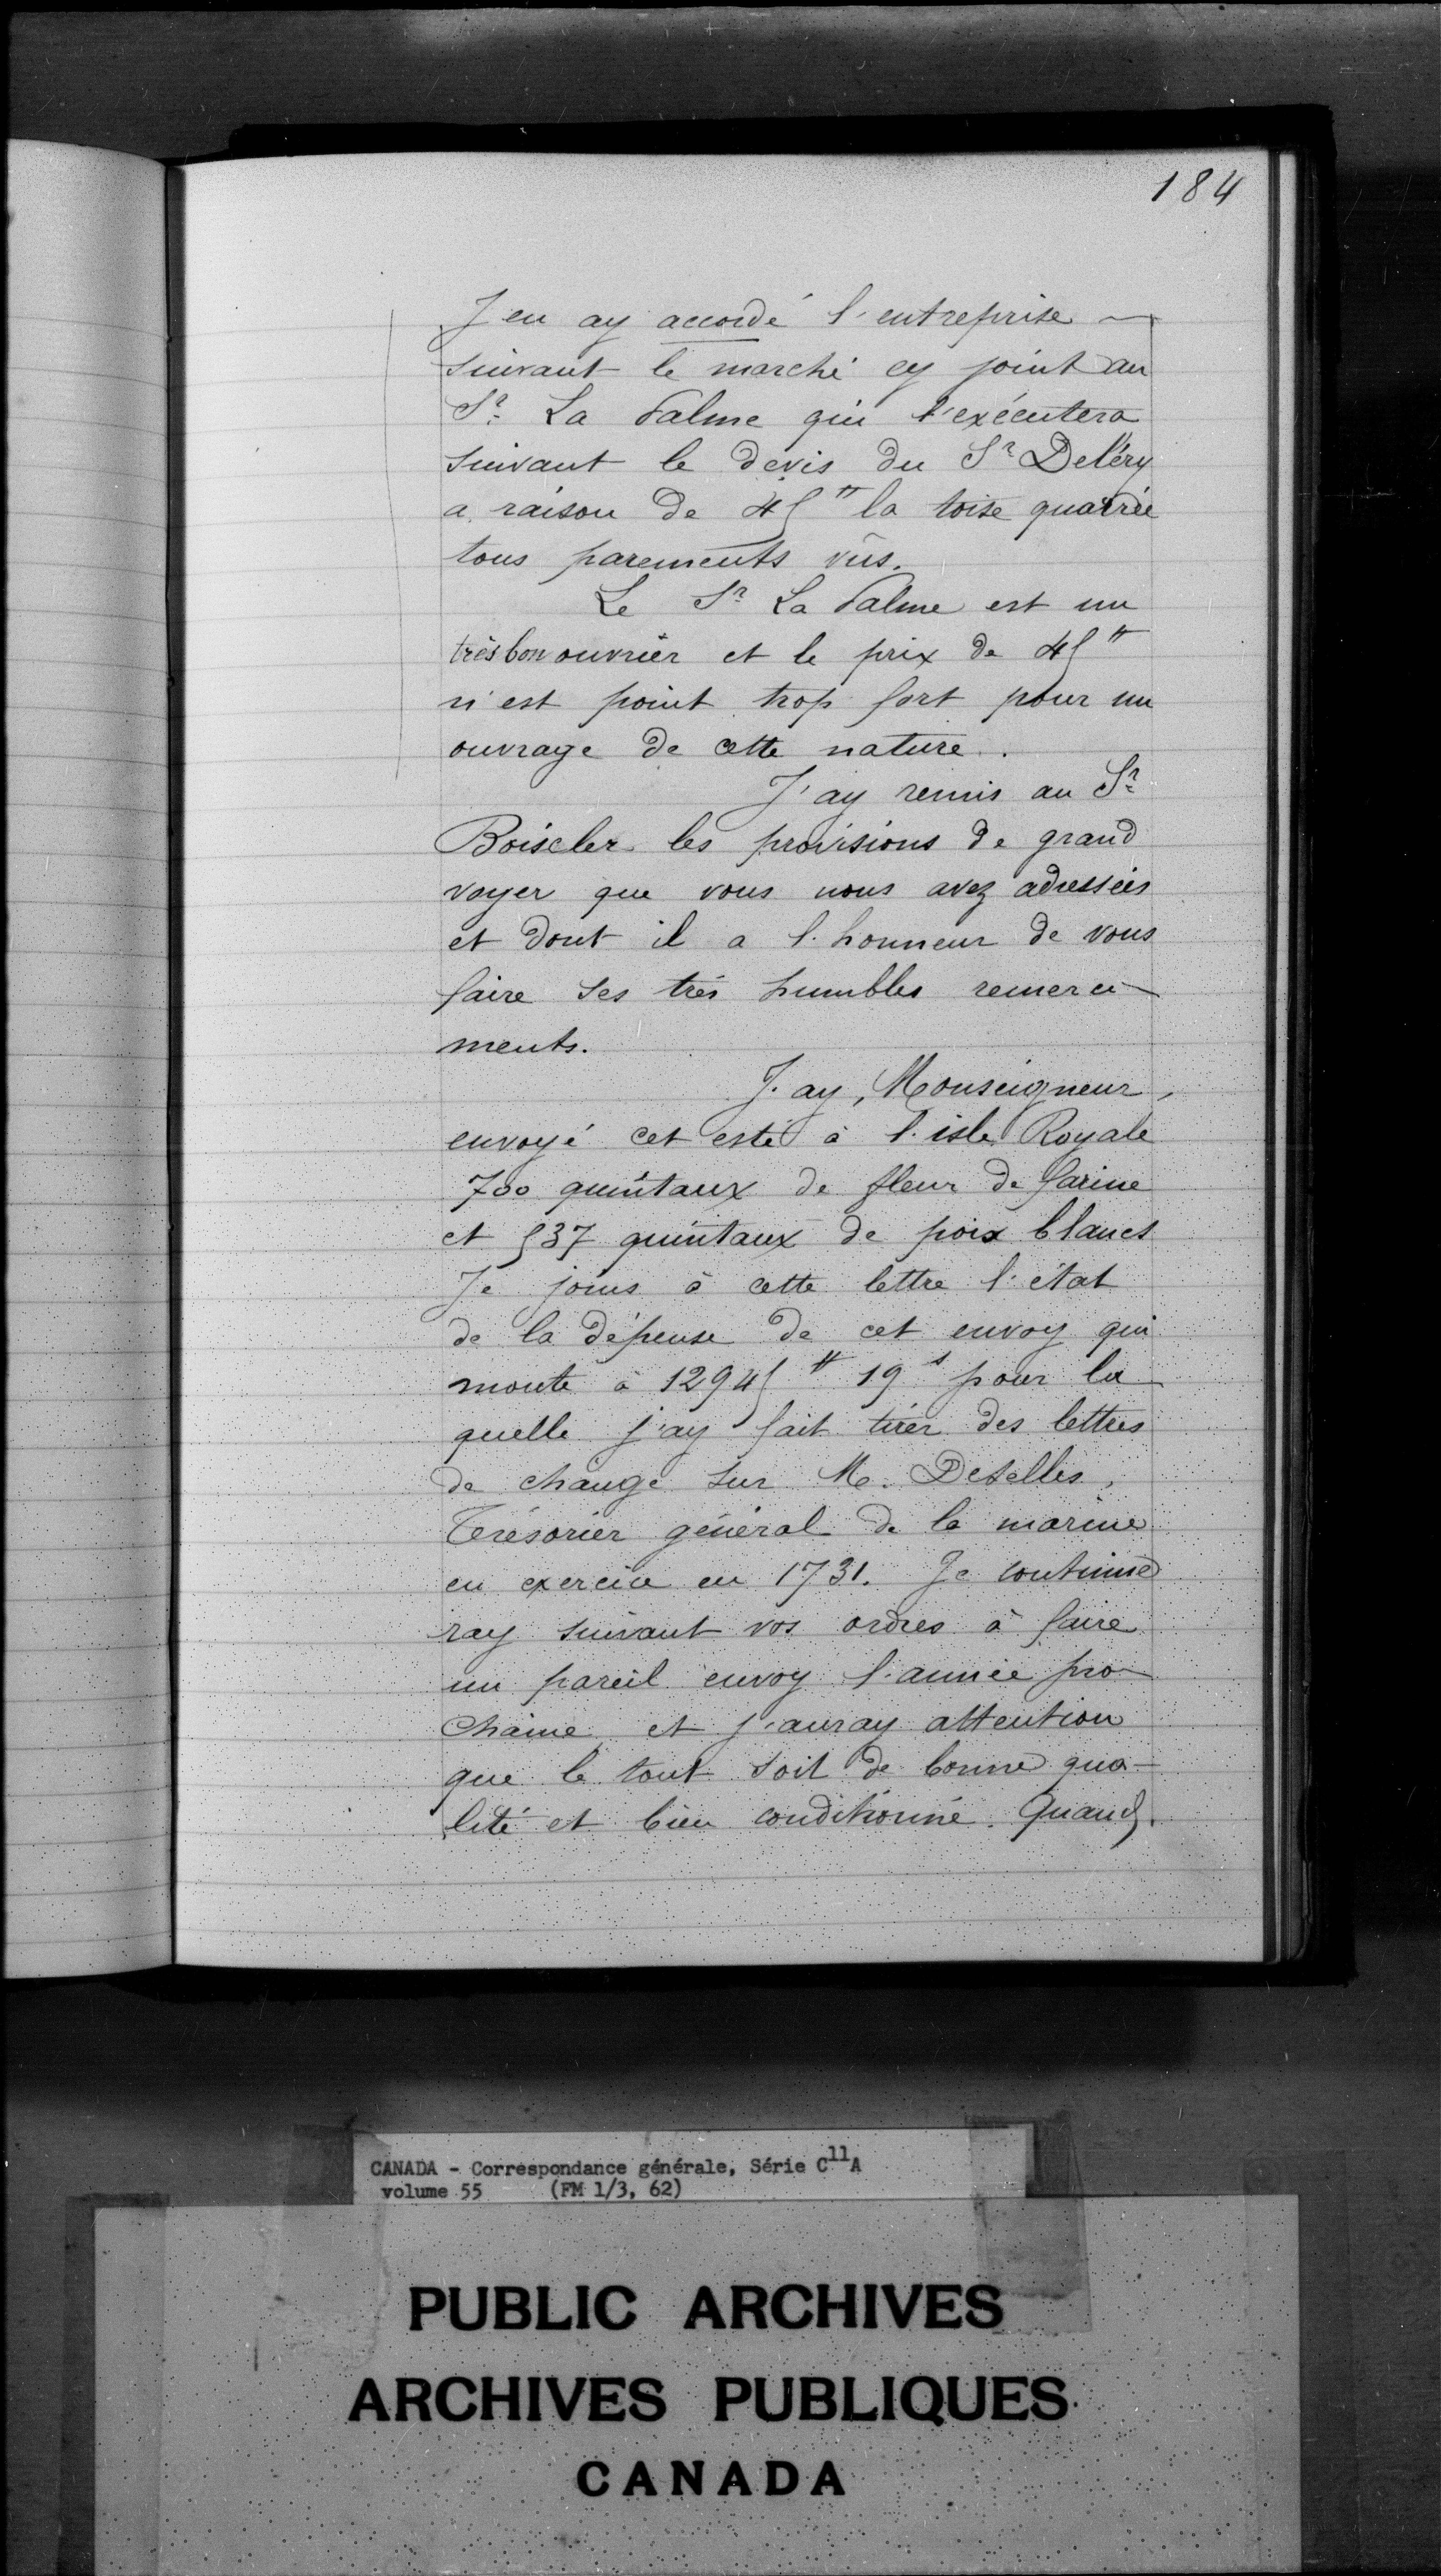 184
J en ay accordé l'entreprise
suivant le marché cy joint au
Sr. La Palme qui l'exécutera
suivant le devis du Sr. Deléry
a raison de 45 ₶ la toise quarrée
tous parements vûs.
Le Sr. La Palme est un
très bon ouvrier et le prix de 45 ₶
n'est point trop fort pour un
ouvrage de cette nature.
J'ay remis au Sr.
Boiscler les provisions de grand
voyer que vous nous avez adressées
et dont il a l'honneur de vous
faire ses très humbles remerci-
ments.
J'ay, Monseigneur,
envoyé cet esté à l'isle Royale
700 quintaux de fleur de farine
et 537 quintaux de poix blancs
Je joins à cette lettre l'état
de la dépense de cet envoy qui
monte à 12945 ₶ 19 s pour la
quelle j'ay fait tirer des lettres
de change sur M. Deselles,
Trésorier général de la marine
en exercice en 1731. Je continue
ray suivant vos ordres à faire
un pareil envoy l'année pro-
chaine et j'auray attention
que le tout soit de bonne qua-
lité et bien conditionné. Quand
CANADA - Correspondance générale, Série C11A
volume 55 (FM 1/3, 62)
PUBLIC ARCHIVES
ARCHIVES PUBLIQUES
CANADA